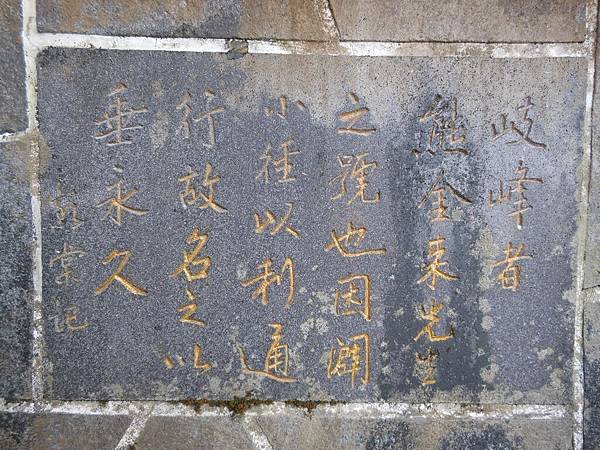 岐峰者
熊金來先生
之號也因闢
小徑以利通
行故名之以
垂永久
棠記